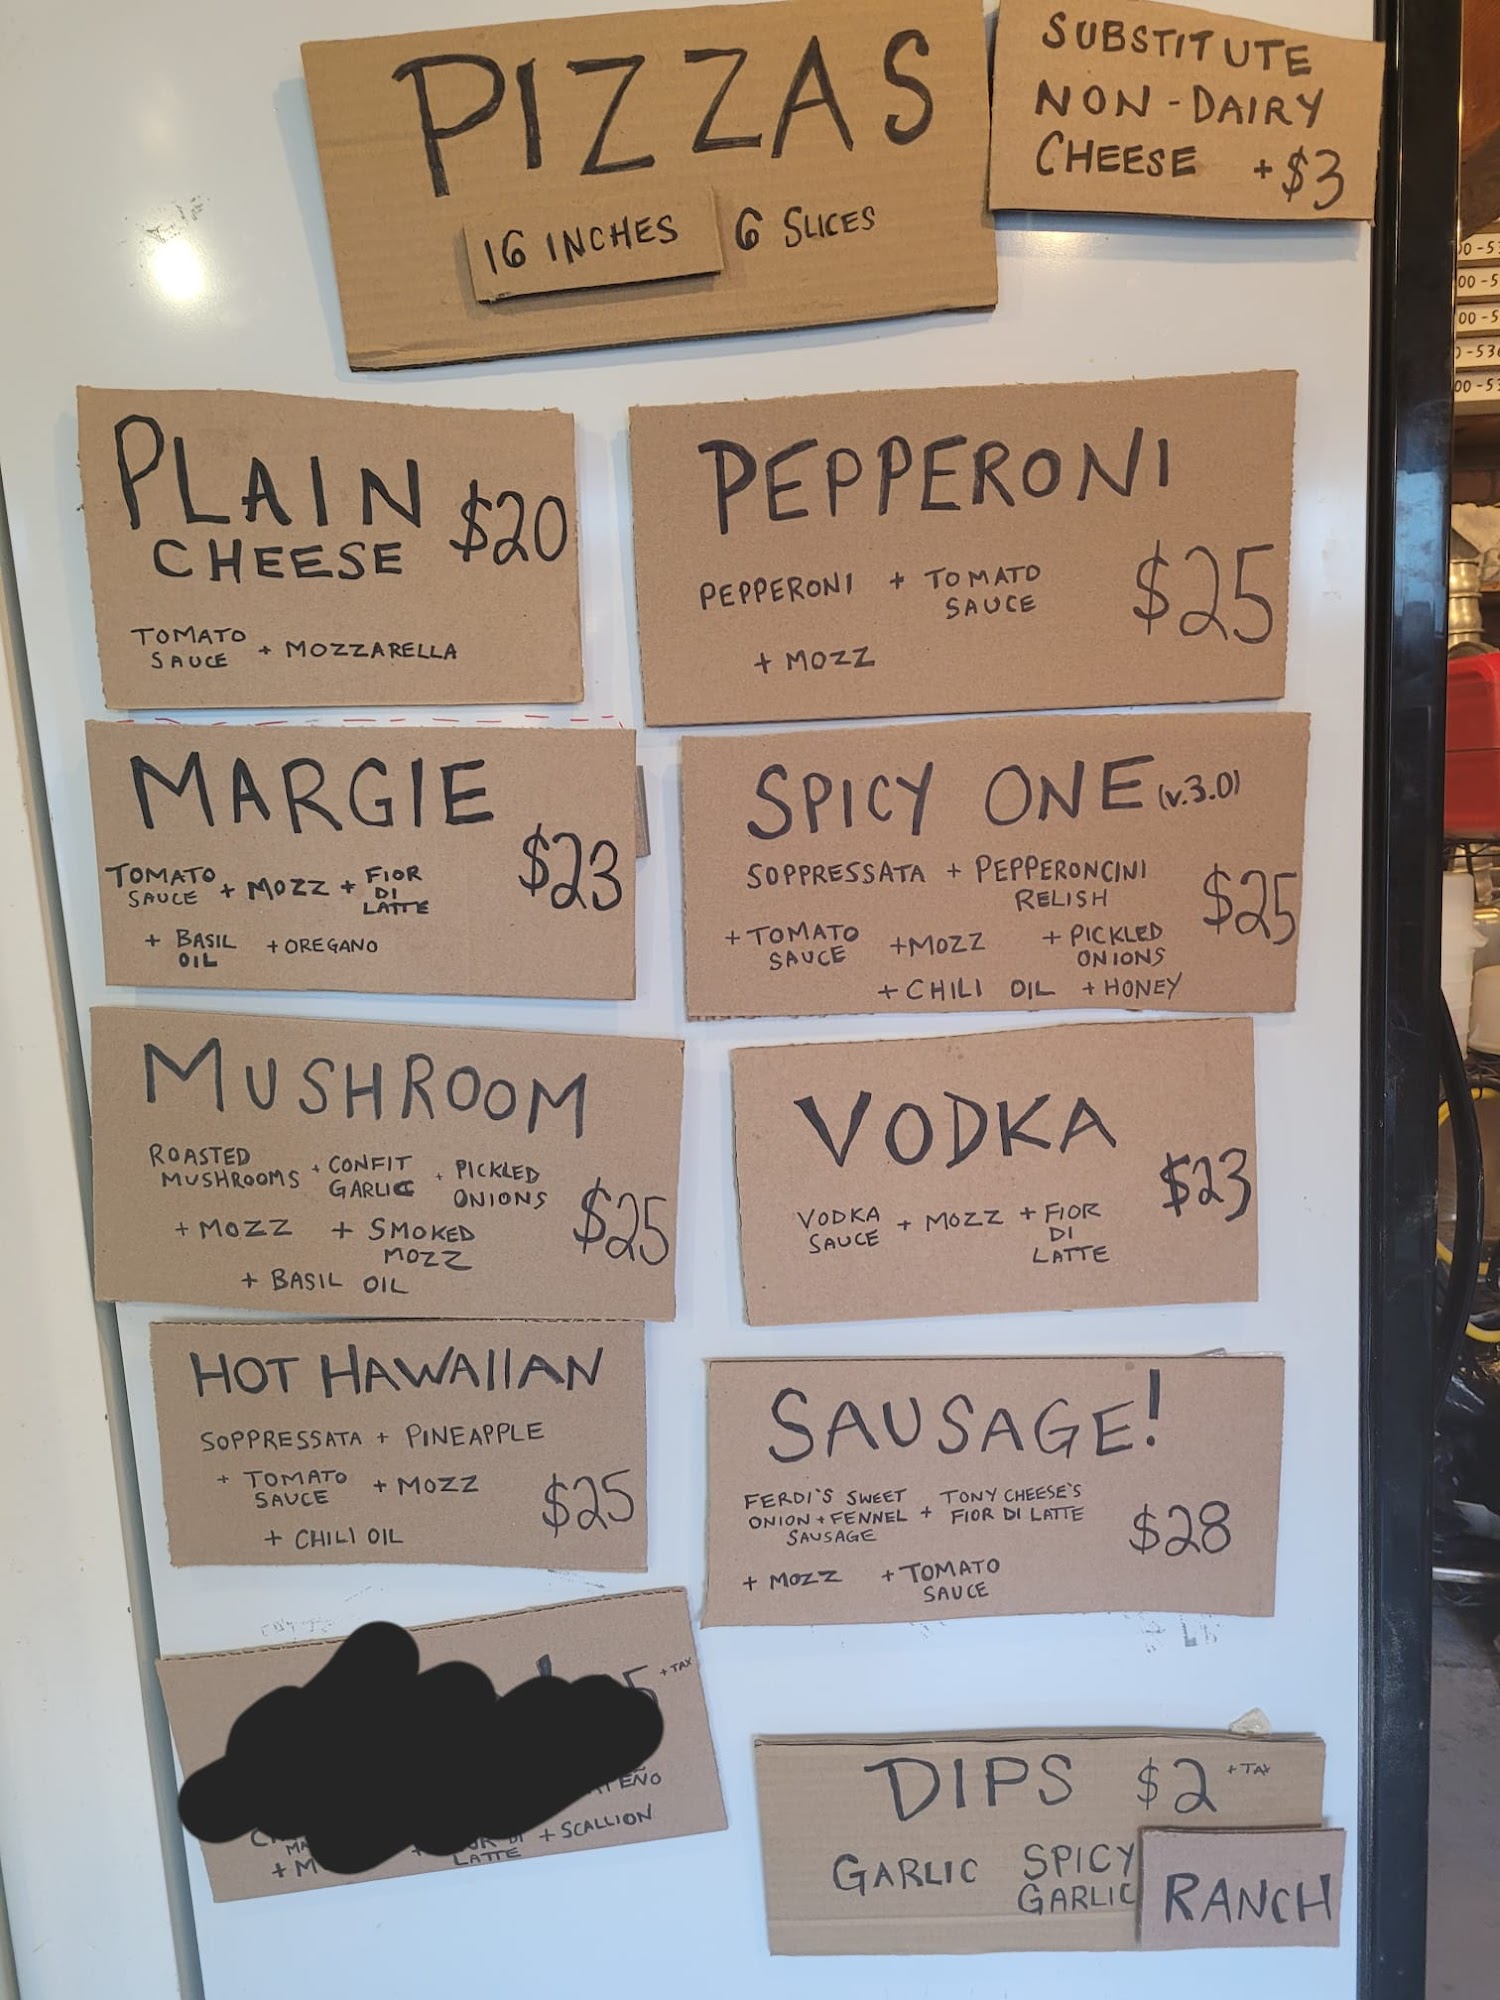 PIZZAS
16 INCHES 6 SLICES
SUBSTITUTE
NON-DAIRY
CHEESE +$3
PLAIN
CHEESE $20
TOMATO
SAUCE + MOZZARELLA
PEPPERONI
PEPPERONI + TOMATO
SAUCE
$25
+ MOZZ
MARGIE
$23
TOMATO
SAUCE + MOZZ + FIOR
DI
LATTE
+ BASIL
OIL + OREGANO
SPICY ONE (v.3.0)
SOPPRESSATA + PEPPERONCINI
RELISH
$25
+ TOMATO
SAUCE + MOZZ + PICKLED
ONIONS
+ CHILI OIL + HONEY
MUSHROOM
ROASTED
MUSHROOMS + CONFIT
GARLIC + PICKLED
ONIONS
$25
+ MOZZ + SMOKED
MOZZ
+ BASIL OIL
VODKA
$23
VODKA
SAUCE + MOZZ + FIOR
DI
LATTE
HOT HAWAIIAN
SOPPRESSATA + PINEAPPLE
+ TOMATO
SAUCE + MOZZ
$25
+ CHILI OIL
SAUSAGE!
FERDI'S SWEET
ONION + FENNEL
SAUSAGE + TONY CHEESE'S
FIOR DI LATTE
$28
+ MOZZ + TOMATO
SAUCE
+ TAX
LATTE
+ SCALLION
DIPS $2 + TAX
GARLIC SPICY
GARLIC RANCH